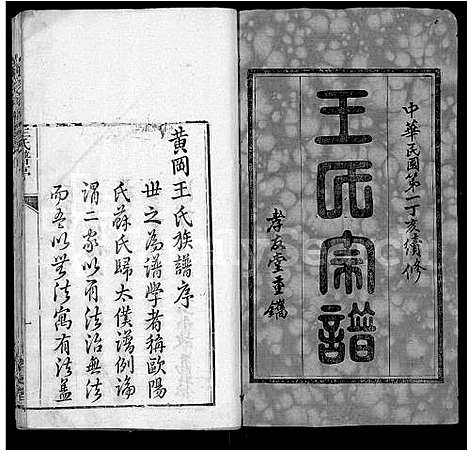 中華民國第一丁亥續修
王氏宗譜
孝友堂重鐫
黄岡王氏族譜序
世之為譜學者稱歐陽
氏蘇氏歸太僕譜例論
謂二家以有法治無法
而吾以無法寓有法蓋